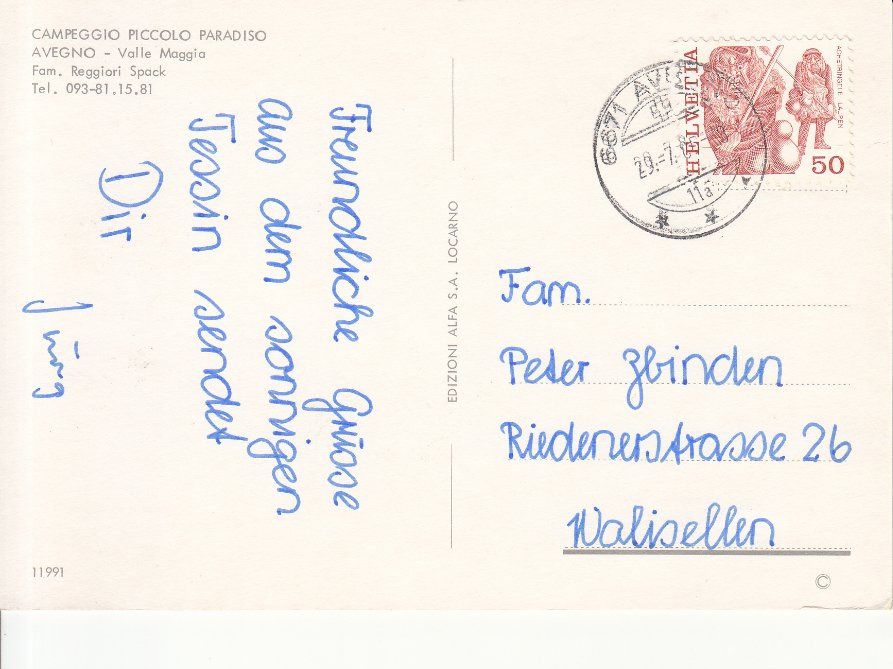 CAMPEGGIO PICCOLO PARADISO
AVEGNO – Valle Maggia
Fam. Reggiori Spack
Tel. 093-81.15.81
Freundliche Grüsse
aus dem sonnigen
Tessin sendet
Dir
Jürg
EDIZIONI ALFA S.A. LOCARNO
HELVETIA
50
6671
29.-7.
11
Fam.
Peter Zbinden
Riedenerstrasse 26
Walisellen
11991
©